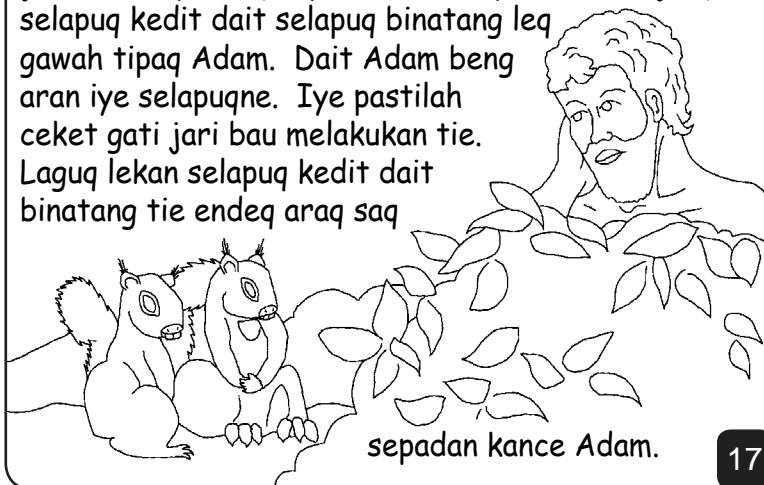 selapuq kedit dait selapuq binatang leq
gawah tipaq Adam. Dait Adam beng
aran iye selapuqne. Iye pastilah
ceket gati jari bau melakukan tie.
Laguq lekan selapuq kedit dait
binatang tie endeq araq saq
sepadan kance Adam.
17